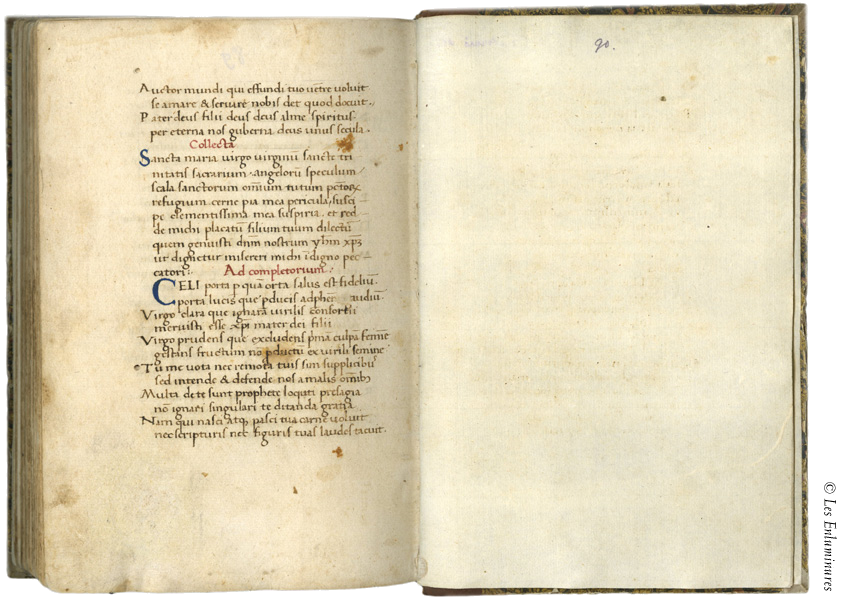 Auctor mundi qui effundi tuo uētre uoluit
se amare & seruare nobis det quod docuit.
Pater deus filii deus deus alme spiritus
per eterna nos guberna deus unus secula.
Collecta
Sancta maria uirgo uirginū sancte tri
nitatis sacrarium. angelorū speculum
scala sanctorum omīum tutum
refugium cerne pia mea pericula, susci
pe clementissima mea suspiria. et red
de michi placatū filium tuum dilectū
quem genuisti dn̄m nostrum yhm xp̄m
ut dignetur misereri michi īdigno pec
catori: Ad completorium.
CELI porta p quā orta salus est fidelium
porta lucis que pducis ad
Virgo clara que ignara uirilis consortii
meruisti esse xp̄i mater dei filii
Virgo prudens que excludens pmā culpā femine
gestans fructum nō pductū ex uirili semine
Tu me uota nec remota tuis sun supplicibꝰ
sed intende & defende nos a malis omībꝫ
Multa de te sunt prophete loquti presagia
nō ignari singulari te ditanda gratia
Nam qui nasci atqꝫ pasci tua carne uoluit
nec scripturis nec figuris tuas laudes tacuit.
90.
© Les Enluminures